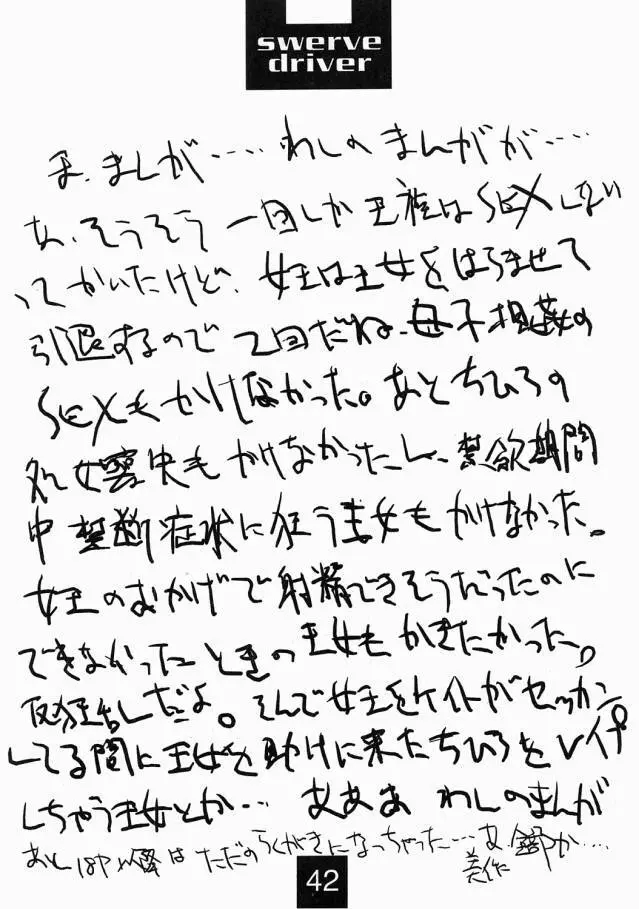 swerve
driver
ま、まんが‥‥わしのまんがが‥‥
あ、そうそう一回しか王族はSEXしない
ってかいたけど、女王は王女をはらませて
引退するので2回だね、母子相姦の
SEXもかけなかった。あとちひろの
処女喪失もかけなかったし、禁欲期間
中禁断症状に狂う王女もかけなかった。
女王のおかげで射精できそうだったのに
できなかったときの王女もかきたかった。
半狂乱だよ。そんで女王をケイトがセッカン
してる間に王女を助けに来たちひろをレイプ
しちゃう王女とか… あああ わしのまんが
あと P以降はただのらくがきになっちゃった…あ、
42